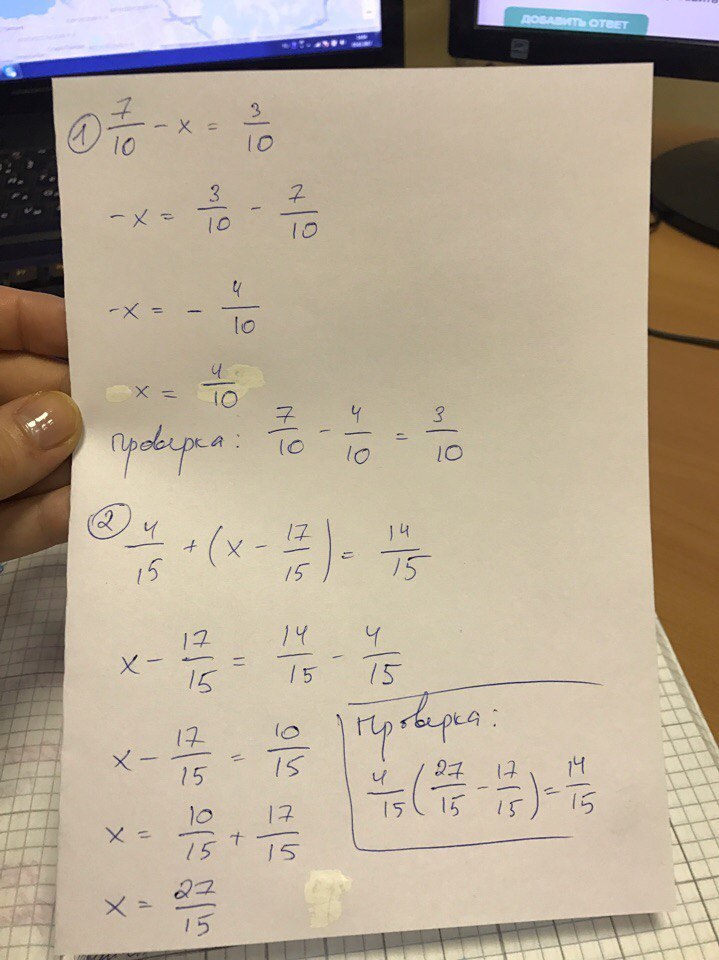 ДОБАВИТЬ ОТВЕТ
① 7/10 - x = 3/10
-x = 3/10 - 7/10
-x = - 4/10
x = 4/10
Проверка: 7/10 - 4/10 = 3/10
② 4/15 + (x - 17/15) = 14/15
x - 17/15 = 14/15 - 4/15
x - 17/15 = 10/15
x = 10/15 + 17/15
x = 27/15
Проверка:
4/15 (27/15 - 17/15) = 14/15